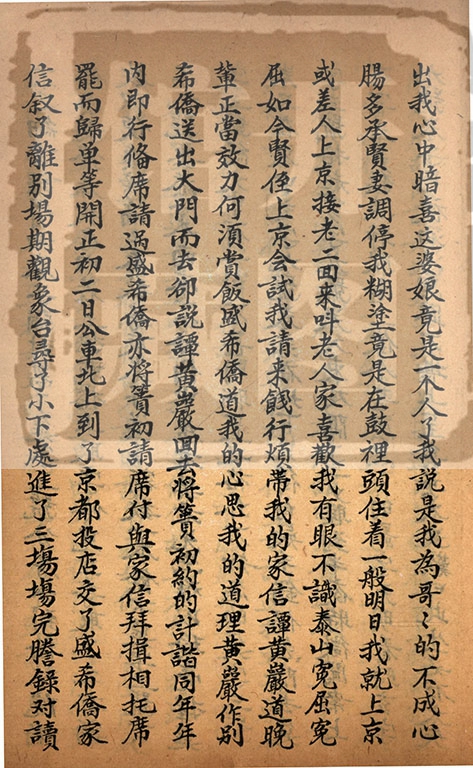 出我心中暗喜这婆娘竟是一个人了我說是我為哥〻的不成心
腸多承賢妻調停我糊塗竟是在鼓裡頭住着一般明日我就上京
或差人上京接老二回来呌老人家喜歡我有眼不識泰山寃屈寃
屈如今賢侄上京会試我請来餞行煩带我的家信譚黄嚴道晚
軰正當效力何湏賞飯盛希僑道我的心思我的道理黄嚴作别
希僑送出大門而去卻說譚黄嚴回去将簣初約的計諧同年年
内即行俻席請過盛希僑亦将簣初請席付與家信拜揖相托席
罷而歸单等開正初二日公車北上到了京都投店交了盛希僑家
信叙了離别場期觀象台尋了小下處進了三塲塲完謄録对讀